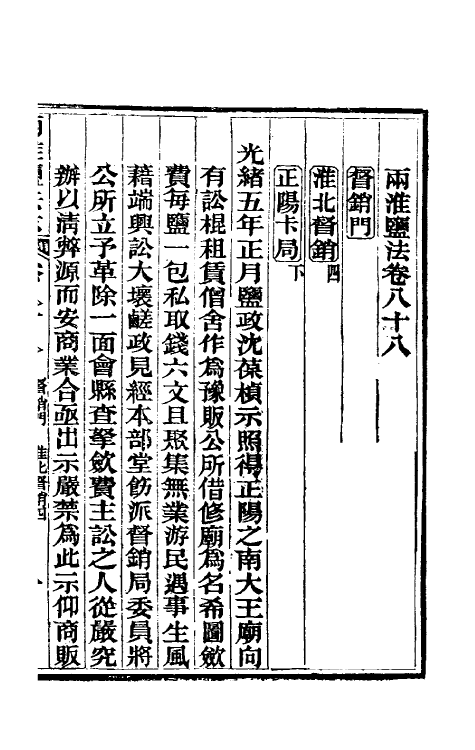 兩淮鹽法卷八十八
督銷門
淮北督銷四
正陽卡局下
光緒五年正月鹽政沈葆楨示照得正陽之南大王廟向
有訟棍租賃僧舍作爲豫販公所借修廟爲名希圖斂
費每鹽一包私取錢六文且聚集無業游民遇事生風
藉端興訟大壞鹺政見經本部堂飭派督銷局委員將
公所立予革除一面會縣查拏斂費主訟之人從嚴究
辦以淸弊源而安商業合亟出示嚴禁爲此示仰商販
督銷門 淮北督銷四